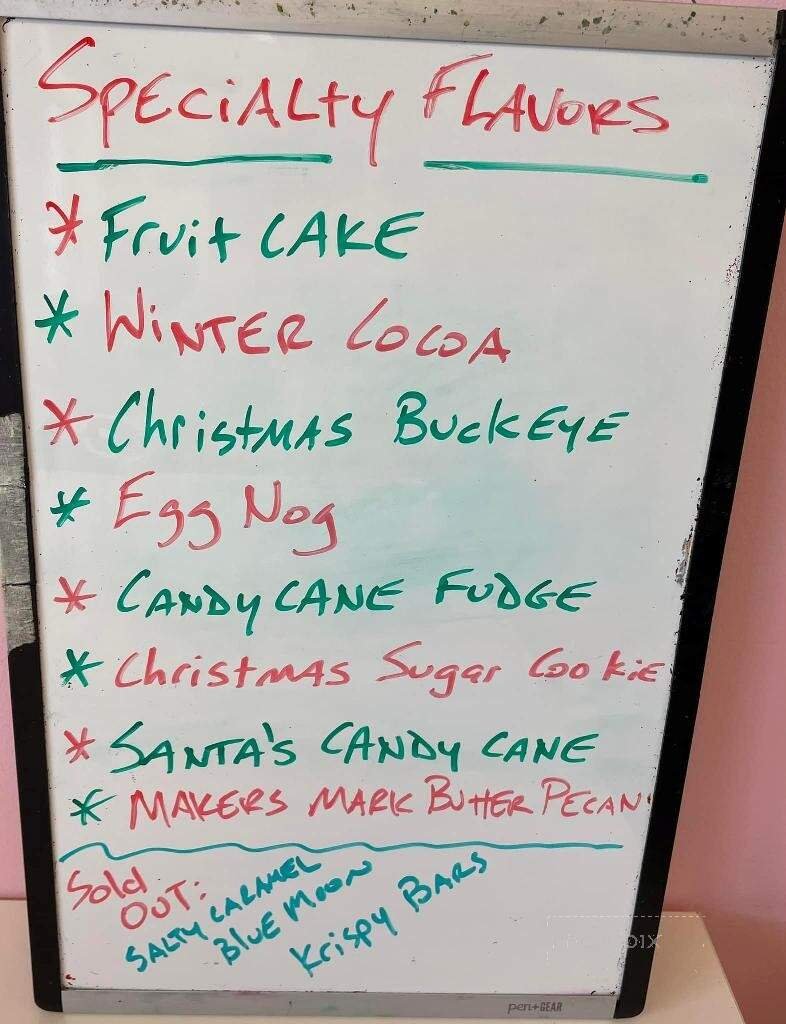 SPECiALty FLAVORS
* Fruit CAKE
* WiNTER COCOA
* ChristMAS BuckEyE
* Egg Nog
* CANDy CANE FUDGE
* ChristMAS Sugar Cookie
* SANTA'S CANDy CANE
* MAKERS MARK ButtER PECAN
Sold
OUT:
SALTY CARAMEL
BLUE MOON
Krispy BARS
pen+GEAR